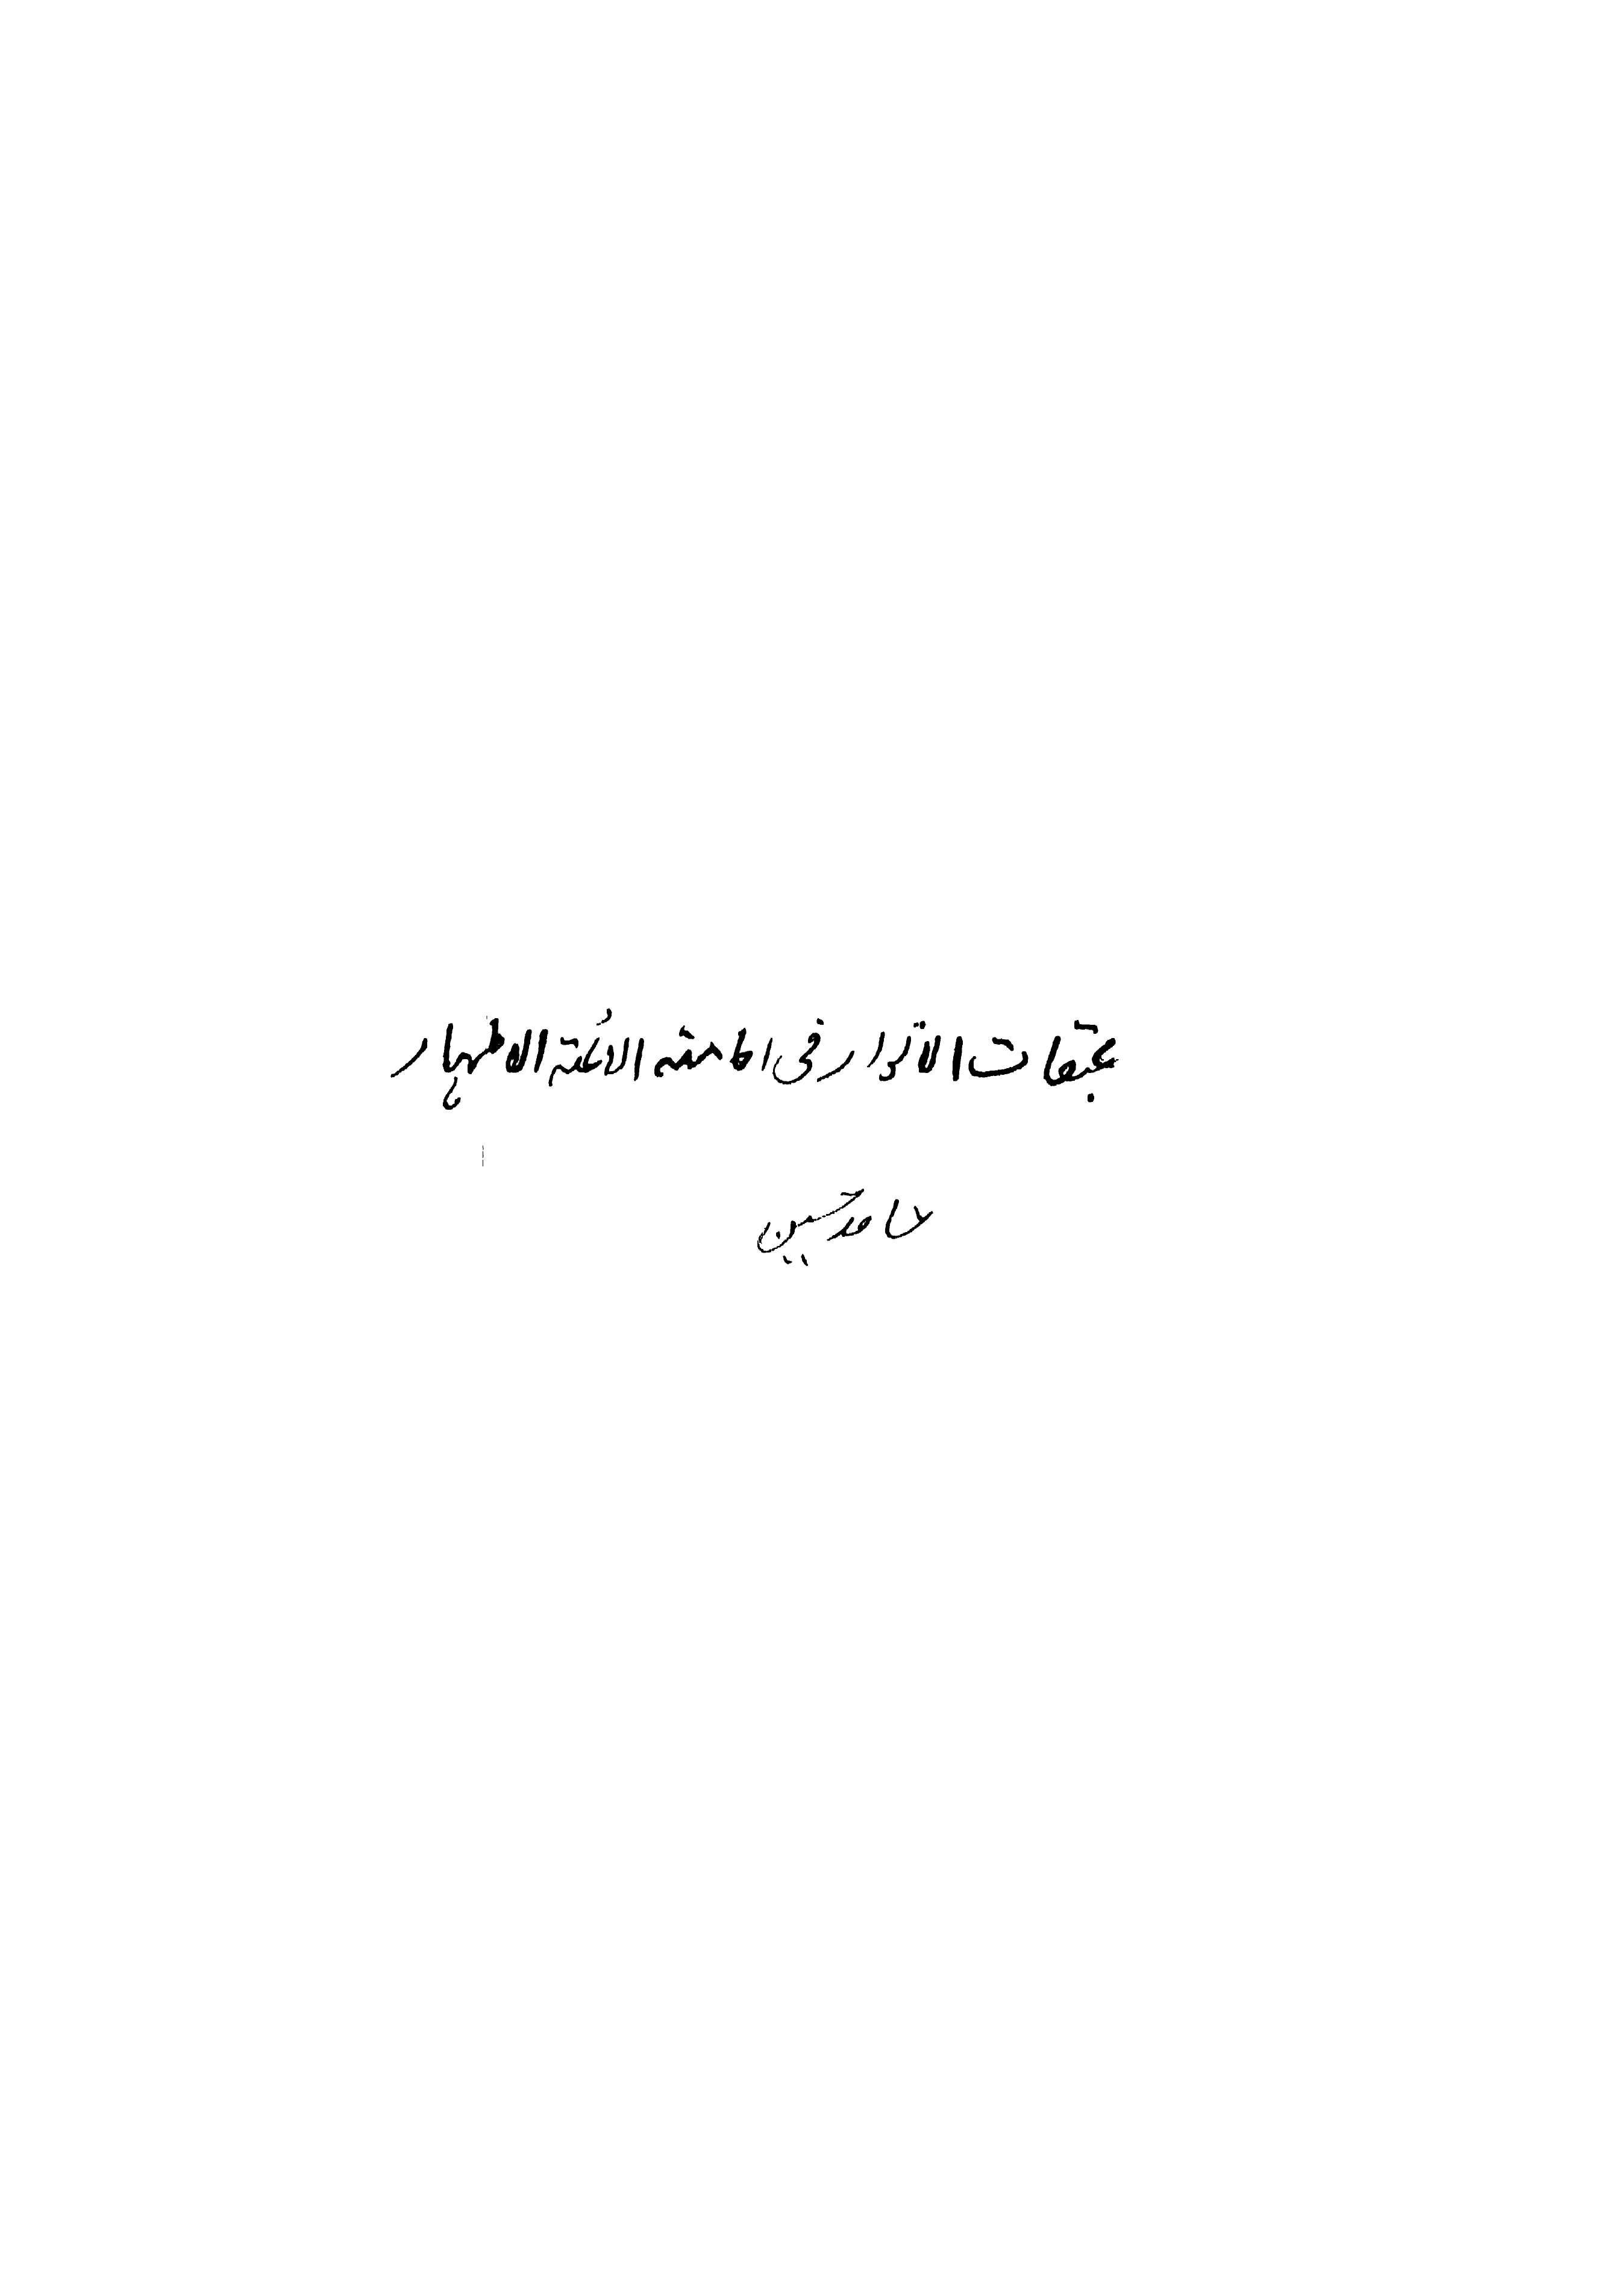 عبقات الانوار فى امامة الائمة الاطهار
حامد حسين